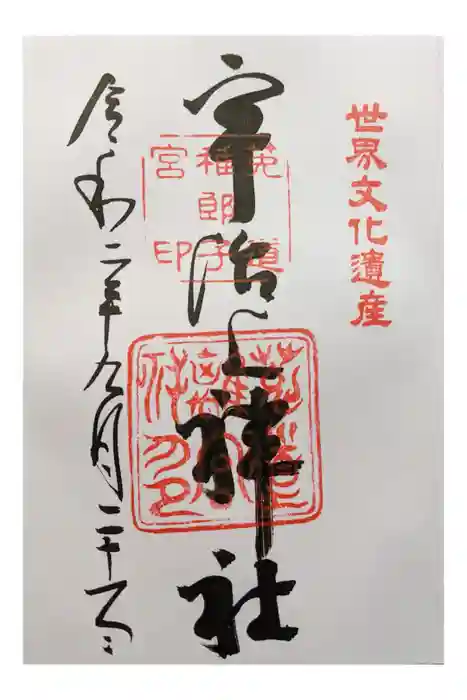 世界文化遺産
宇治上神社
菟道
稚郎子
宮印
令和二年九月二十六日